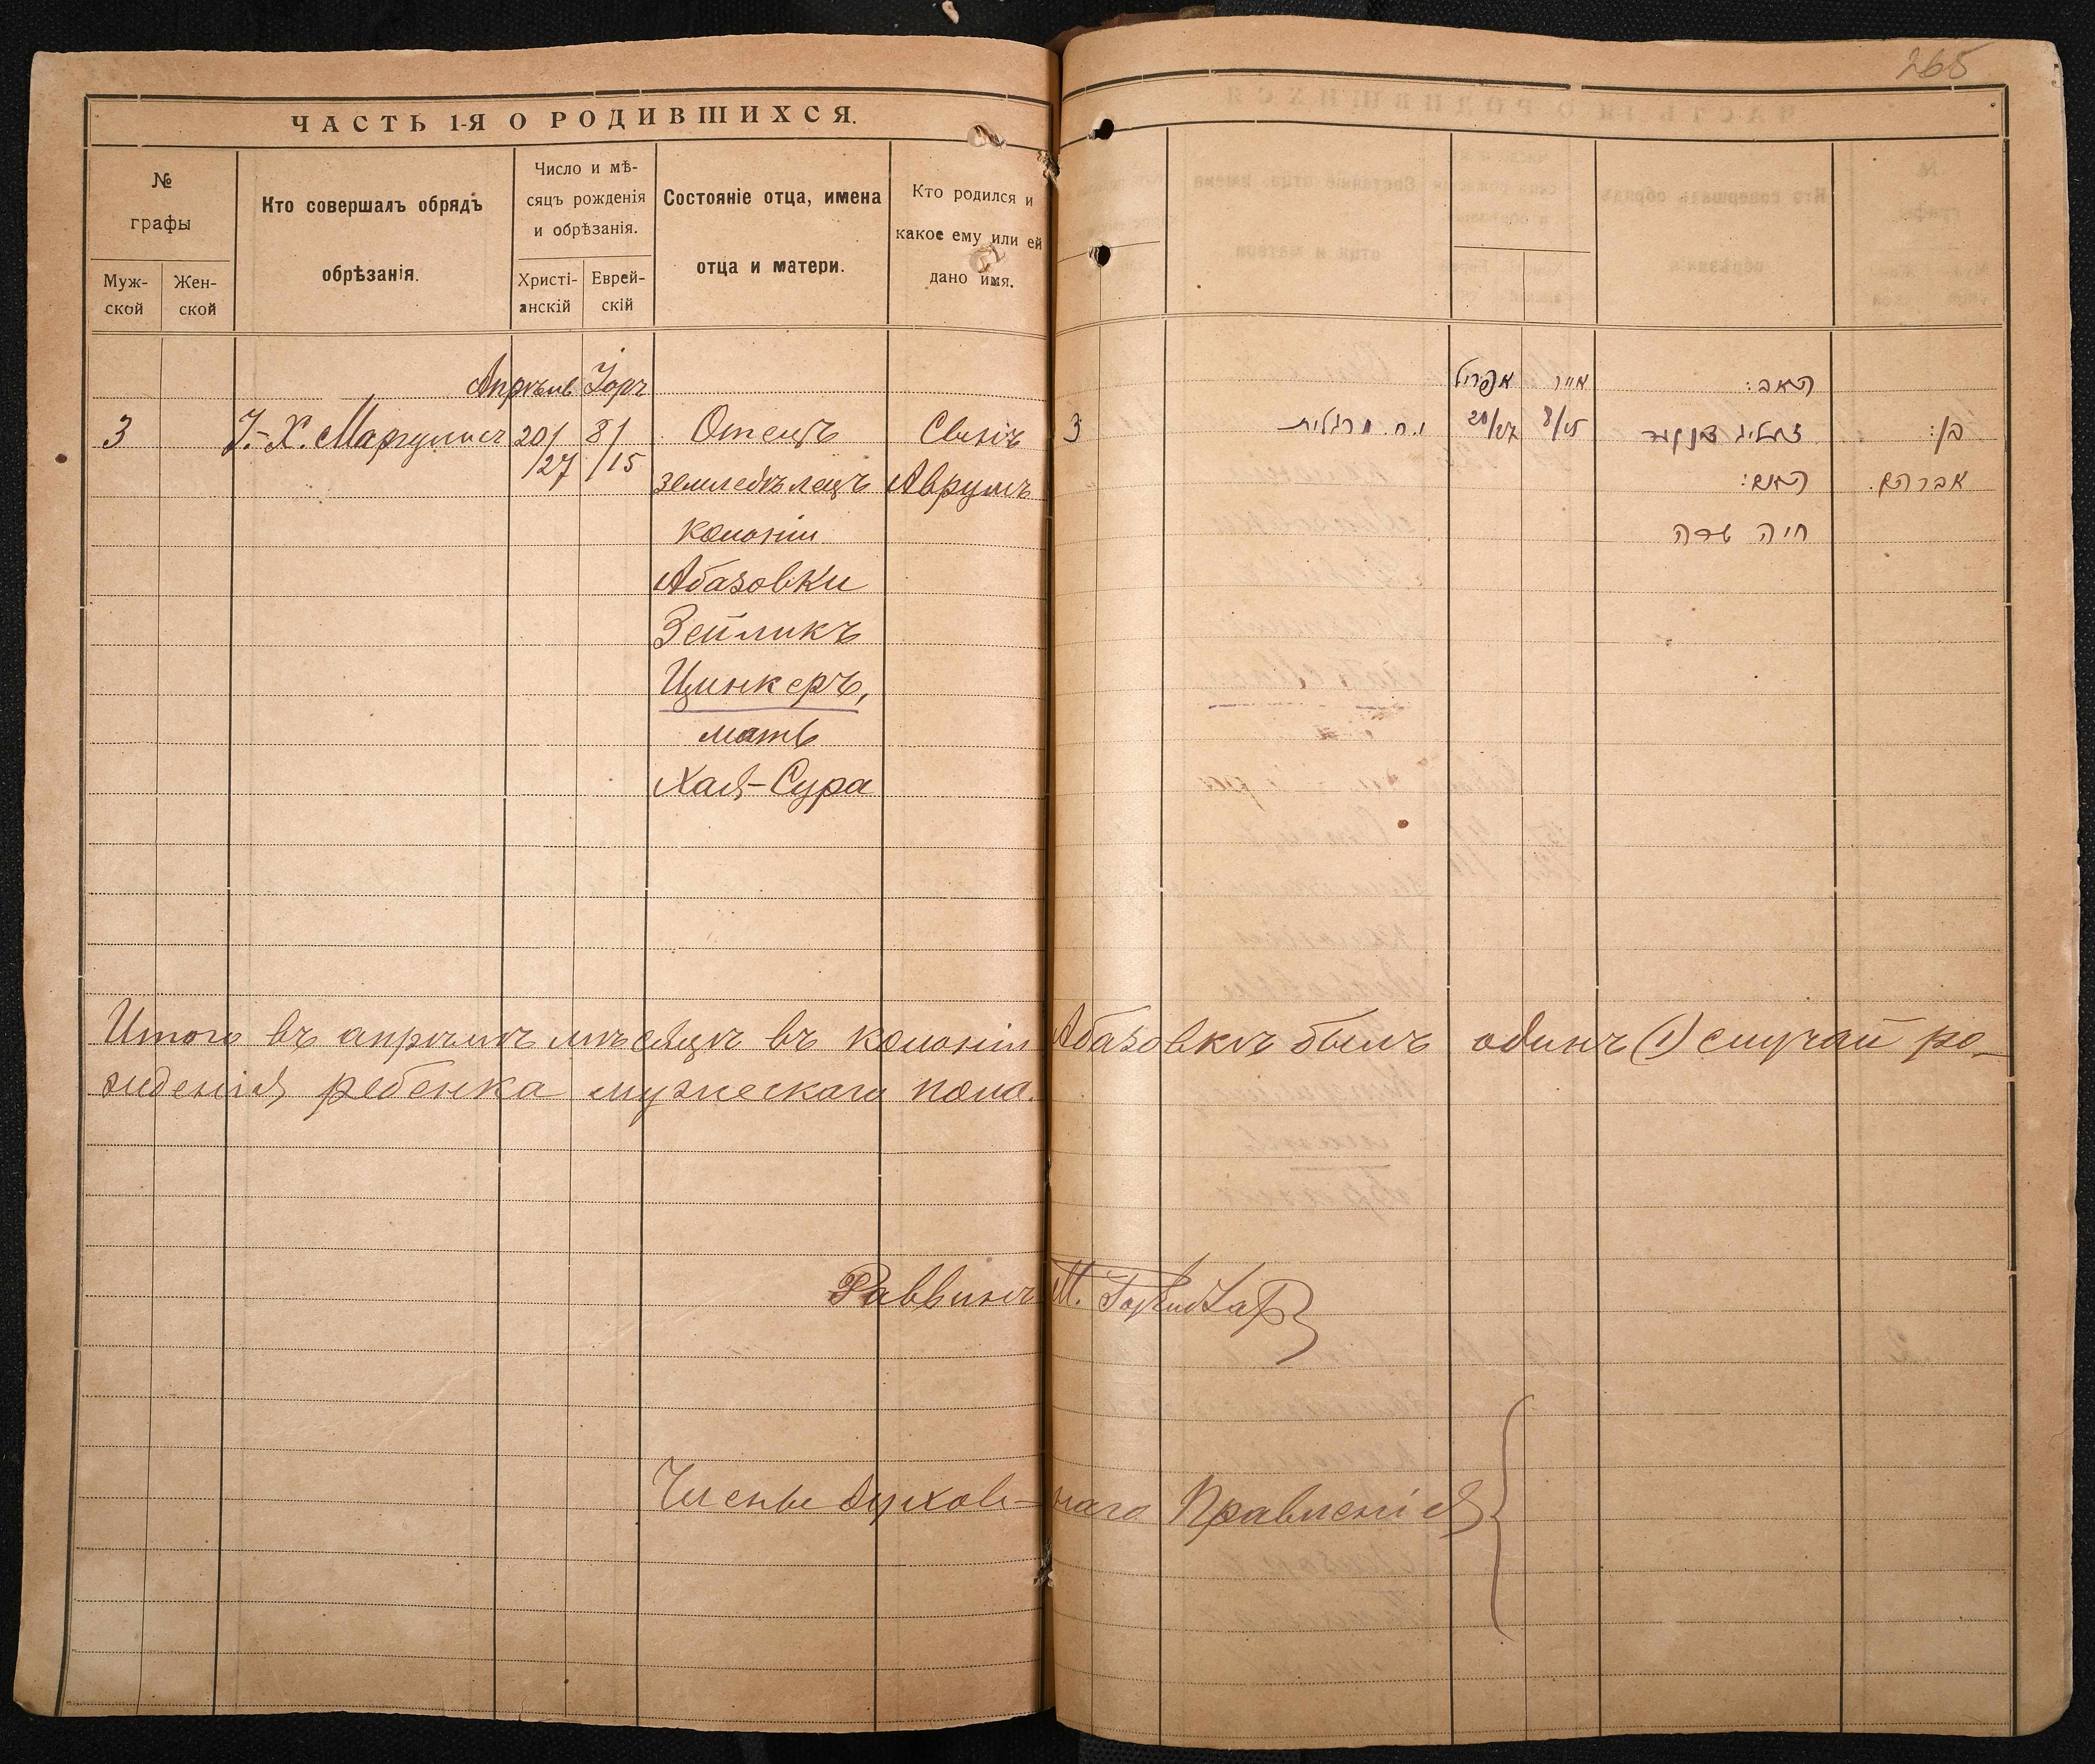 265
ЧАСТЬ 1-Я О РОДИВШИХСЯ.
№
графы
Муж-
ской
Жен-
ской
Кто совершалъ обрядъ
обрѣзанія.
Число и мѣ-
сяцъ рожденія
и обрѣзанія.
Христі-
анскій
Еврей-
скій
Состояніе отца, имена
отца и матери.
Кто родился и
какое ему или ей
дано имя.
Апрѣль Іоръ
3 І.-Х. Маргулисъ 20/ 8/ Отецъ Сынъ
/27 /15
земледѣлецъ Аврумъ
колоніи
Абазовки
Зейликъ
Цинкеръ,
мать
Хая-Сура
אפריל אייר האב:
3 י.ח. מרגלית 20/27 8/15 זעליג צינקער בן:
האם: אברהם.
חיה שרה
Итого въ апрѣлѣ мѣсяцѣ въ колоніи Абазовкѣ былъ одинъ (1) случай ро-
жденія ребенка мужескаго пола.
Раввинъ М.
Члены духов-наго Правленія